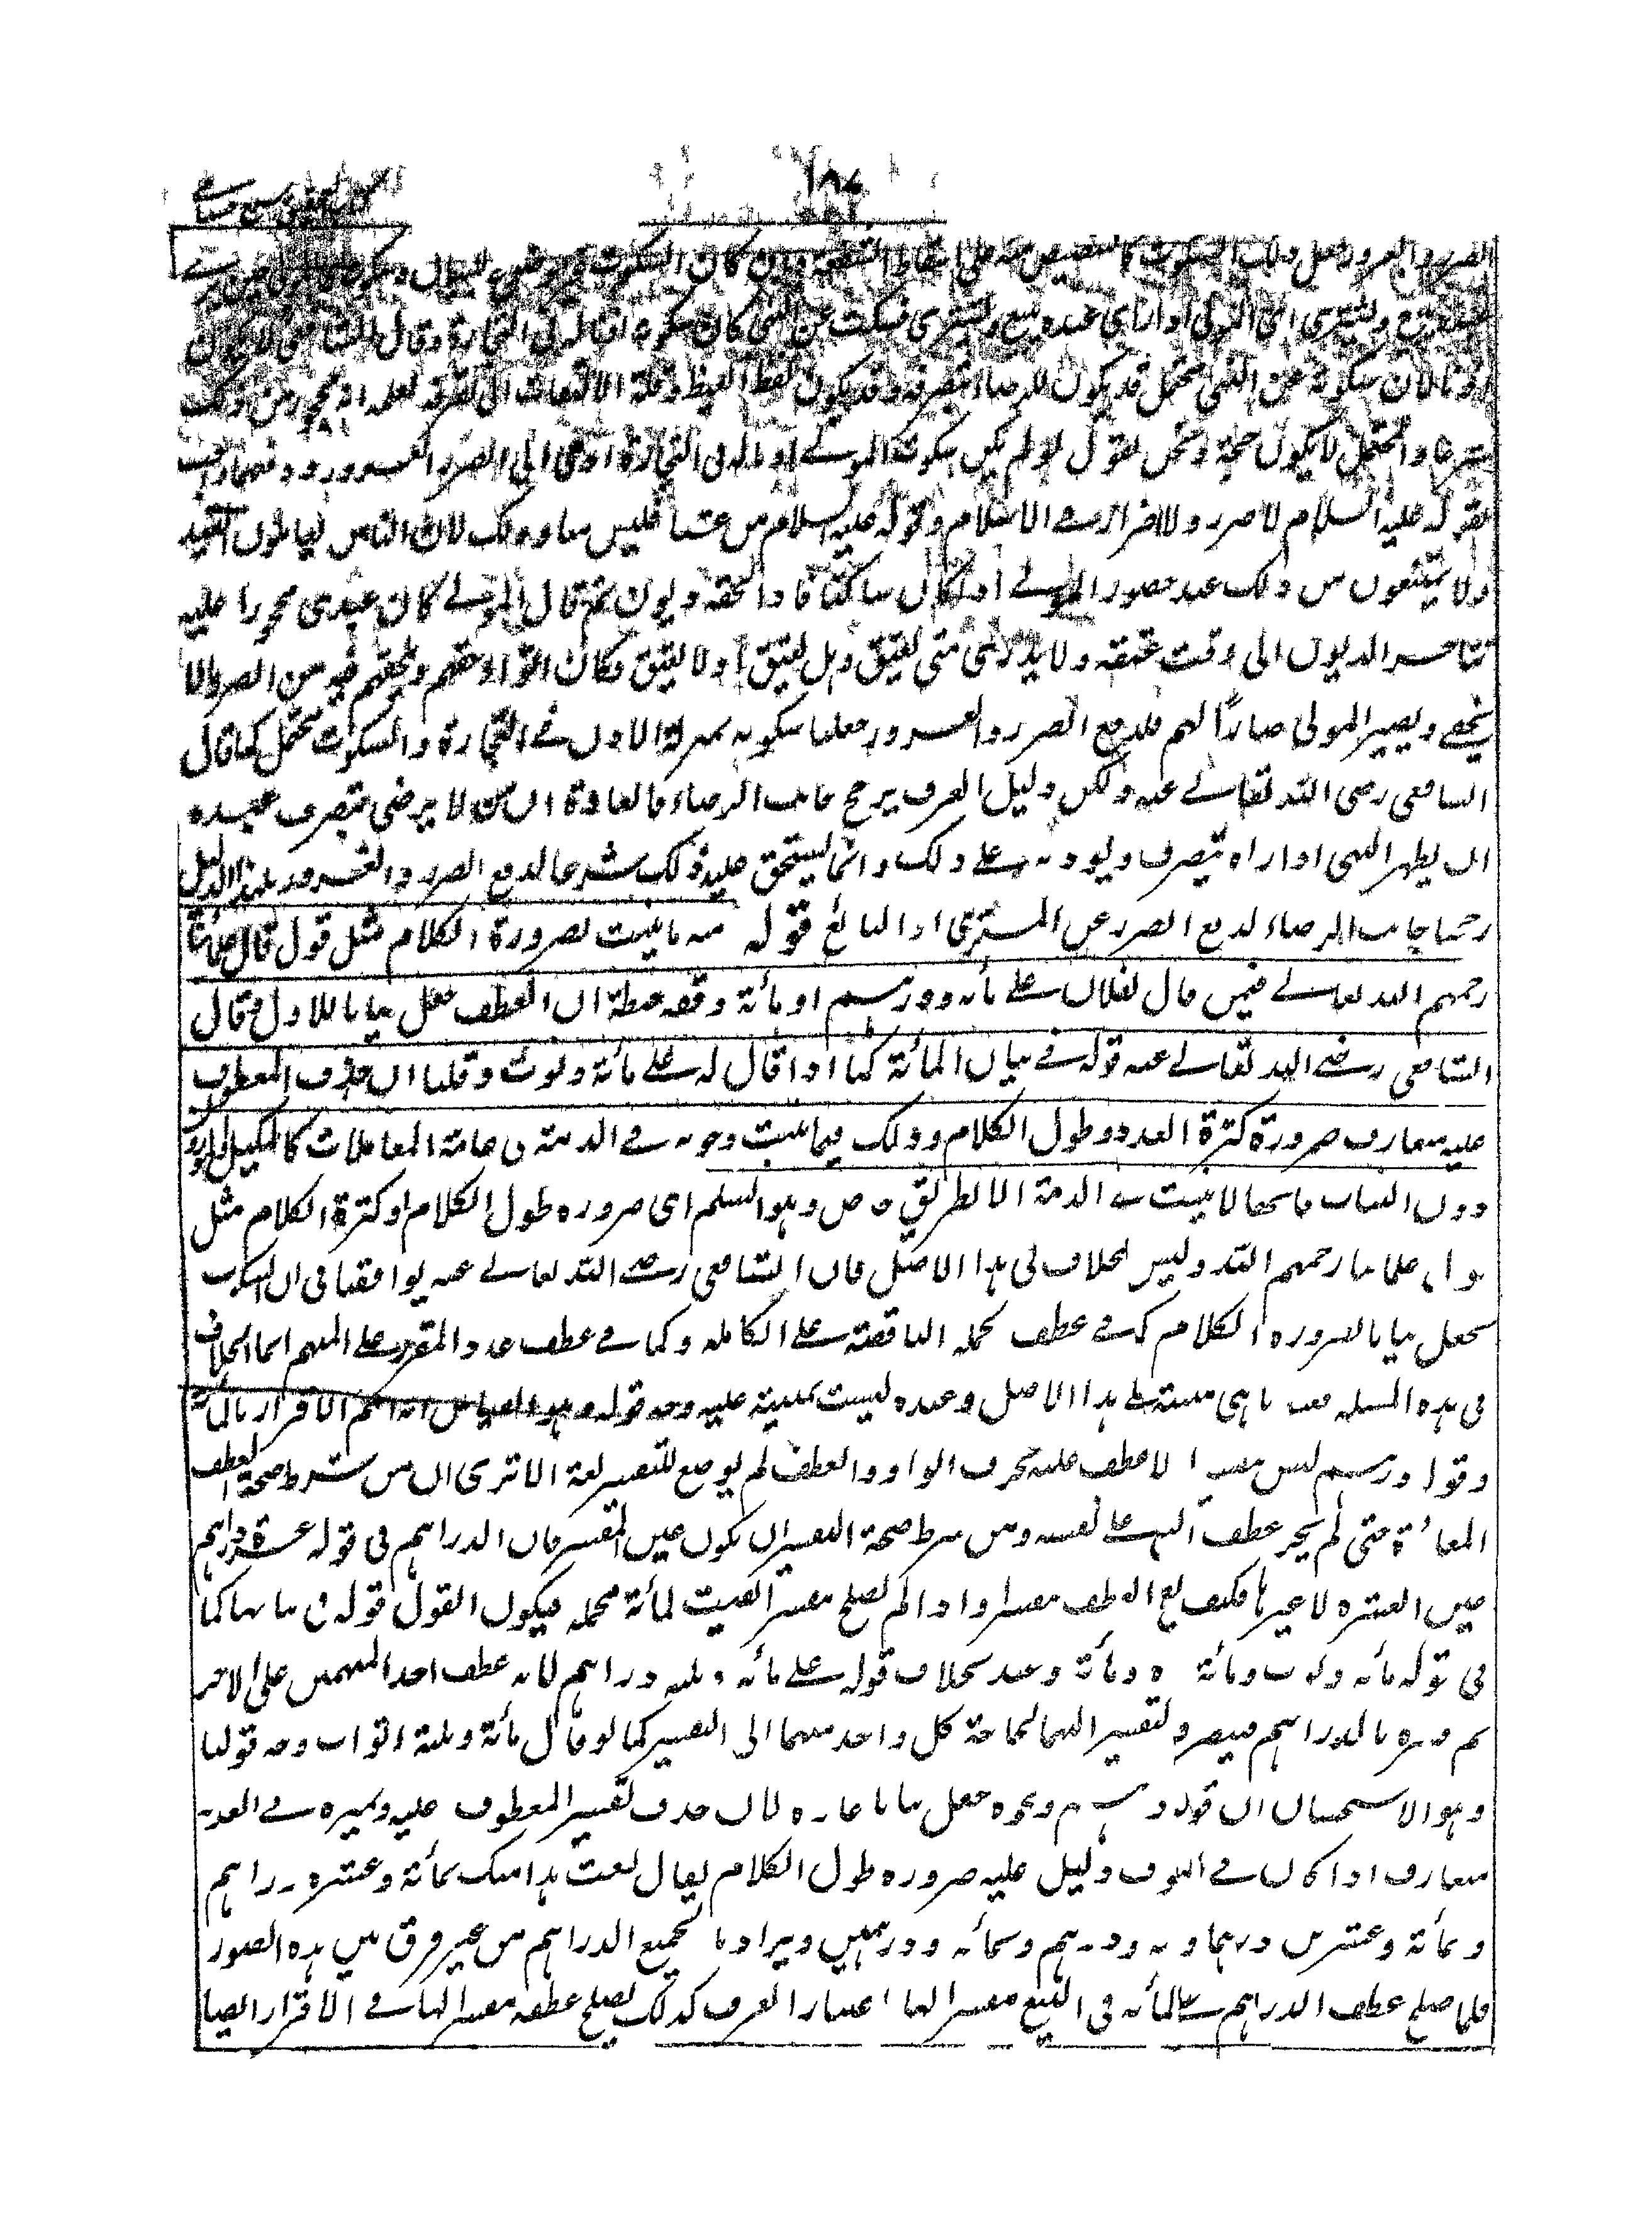 ١٨٧
الضرر والغرور جعل ذلك السكوت كالتنصيص منه على اسقاط الشفعة وان كان السكوت
يبيع ويشترى اذا رأى عبده يبيع ويشترى فسكت عن النهى كان سكوته اذنا له فى التجارة وقال الشافعى لا يكون
اذنا لان سكوته عن النهى محتمل قد يكون للرضاء بتصرفه وقد يكون لفرط الغيظ وقلة الالتفات الى تصرفه لعلمه انه محجور من ذلك
شرعا والمحتمل لا يكون حجة ونحن نقول لو لم يكن سكوت المولے اذنا له فى التجارة ادى الى الضرر والغرور ودفعهما واجب
بقوله عليه السلام لا ضرر ولا اضرار فے الاسلام وقوله عليه السلام من غشنا فليس منا وذلك لان الناس يعاملون العبد
ولا يمتنعون من ذلك عند حضور المولے اذا كان ساكتا فاذا لحقه ديون ثم قال المولے كان عبدى محجورا عليه
تتاخر الديون الى وقت عتقه ولا يدرى متى يعتق وهل يعتق او لا يعتق فكان اتواء حقهم ويلحقهم فيه من الضرر ما لا
يخفے ويصير المولى ضارًا لهم فلدفع الضرر والغرور جعلنا سكوته بمنزلة الاذن فے التجارة والسكوت محتمل كما قال
الشافعى رضى الله تعالے عنه ولكن دليل العرف يرجح جانب الرضاء فالعادة ان من لا يرضى بتصرف عبده
ان يظهر النهى اذا راه يتصرف ويؤدبه علے ذلك وانما يستحق عليه ذلك شرعا لدفع الضرر والغرور فبهذا الدليل
رجحنا جانب الرضاء لدفع الضرر عن المشترى او البائع قوله منه ما يثبت لضرورة الكلام مثل قول علمائنا
رحمهم الله تعالے فيمن قال لفلان علے مائة ودرهم او مائة وقفيز حنطة ان العطف جعل بيانا للاول وقال
الشافعى رضے الله تعالے عنه قوله فے بيان المائة كما اذا قال له علے مائة وثوب وقلنا ان حذف المعطوف
عليه متعارف ضرورة كثرة العدد وطول الكلام وذلك فيما يثبت وجوبه فے الذمة فى عامة المعاملات كالمكيل والموزون
دون الثياب فانها لا يثبت فے الذمة الا بطريق خاص وهو السلم اى ضرورة طول الكلام او كثرة الكلام مثل
قول علمائنا رحمهم الله وليس الخلاف فى هذا الاصل فان الشافعى رضے الله تعالے عنه يوافقنا فى ان السكوت
يجعل بيانا لضرورة الكلام كما فے عطف الجملة الناقصة علے الكاملة وكما فے عطف عدد المفسر علے المبهم انما الخلاف
فى هذه المسئلة فعندنا هى مبنية علے هذا الاصل وعنده ليست بمبنية عليه وجه قوله وهو القياس انه ابهم الاقرار بالمائة
وقوله ودرهم ليس بتفسير لانه عطف عليه بحرف الواو والعطف لم يوضع للتفسير لغة الا ترى ان من شرط صحة العطف
المغايرة حتى لم يجز عطف الشئ علے نفسه ومن شرط صحة التفسير ان يكون عين المفسر فان الدراهم فى قوله عشرة دراهم
عين العشرة لا غيرها فكيف يقع العطف مفسرا واذا لم يصلح مفسرا بقيت المائة مجملة فيكون القول قوله فى بيانها كما
فى قوله مائة وثوب ومائة وشاة ومائة وعبد بخلاف قوله علے مائة وثلثة دراهم لانه عطف احد المبهمين على الاخر
ثم فسره بالدراهم فينصرف التفسير اليهما لحاجة كل واحد منهما الى التفسير كما لو قال مائة وثلثة اثواب وجه قولنا
وهو الاستحسان ان قوله ودرهم ونحوه جعل بيانا عادة لان حذف تفسير المعطوف عليه وتمييزه فے العدد
متعارف اذا كان فے المعطوف دليل عليه ضرورة طول الكلام يقال بعت هذا منك بمائة وعشرة دراهم
وبمائة وعشرين درهما وبمائة ودرهم وبمائة ودرهمين ويراد بالجميع الدراهم من غير فرق بين هذه الصور
فلما صلح عطف الدراهم علے المائة فى البيع مفسرا لها باعتبار العرف كذلك يصلح عطفه مفسرا لها فے الاقرار ايضا